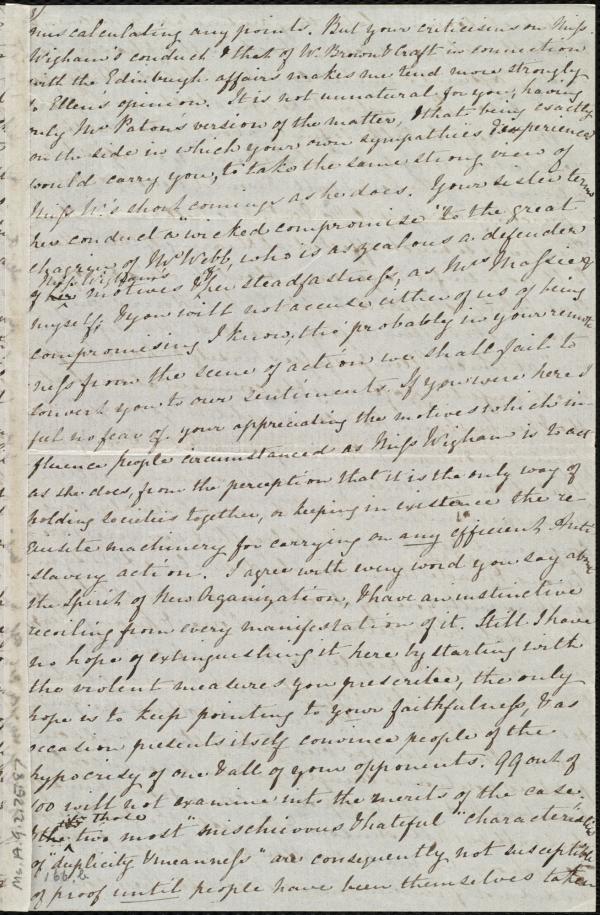 miscalculating any points. But your criticisms on Miss
Wigham's conduct & that of W. Brown & Craft in connection
with the Edinburgh affairs makes me tend more strongly
to Ellen's opinion. It is not unnatural for you, having
only Mr Paton's version of the matter, & that being exactly
on the side in which your own sympathies & experience
would carry you, to take the same strong view of
Miss W.'s short comings as he does. Your sister terms
her conduct a "wicked compromise" to the great
chagrin of Mr Webb, who is as zealous a defender
Miss Wigham's of
of her motives & her steadfastness, as Mrs Massie &
myself; & you will not accuse either of us of being
compromising I know, tho' probably in your remote
ness from the scene of action we shall fail to
convert you to our sentiments. If you were here I
feel no fear of your appreciating the motives which in-
fluence people circumstanced as Miss Wigham is to act
as she does, from the perception that it is the only way of
holding Societies together, or keeping in existence the re-
quisite machinery for carrying on any efficient Anti-
slavery action. I agree with every word you say about
the Spirit of New Organization, & have an instinctive
recoiling from every manifestation of it. Still I have
no hope of extinguishing it here by starting with
the violent measures you prescribe, the only
hope is to keep pointing to your faithfulness, & as
occasion presents itself convince people of the
hypocrisy of one & all of your opponents. 99 out of
100 will not examine into the merits of the case.
those
& the two most "mischievous & hateful "characteristics
of "duplicity & meanness" are consequently, not susceptible
of proof until people have been themselves taken
Ms. A. 9. 2. 26. 87
166. b